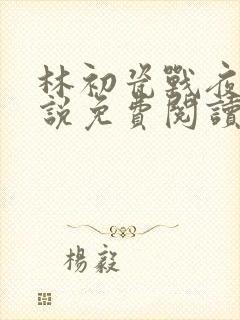 林初瓷戰夜
說免費閱讀
楊毅